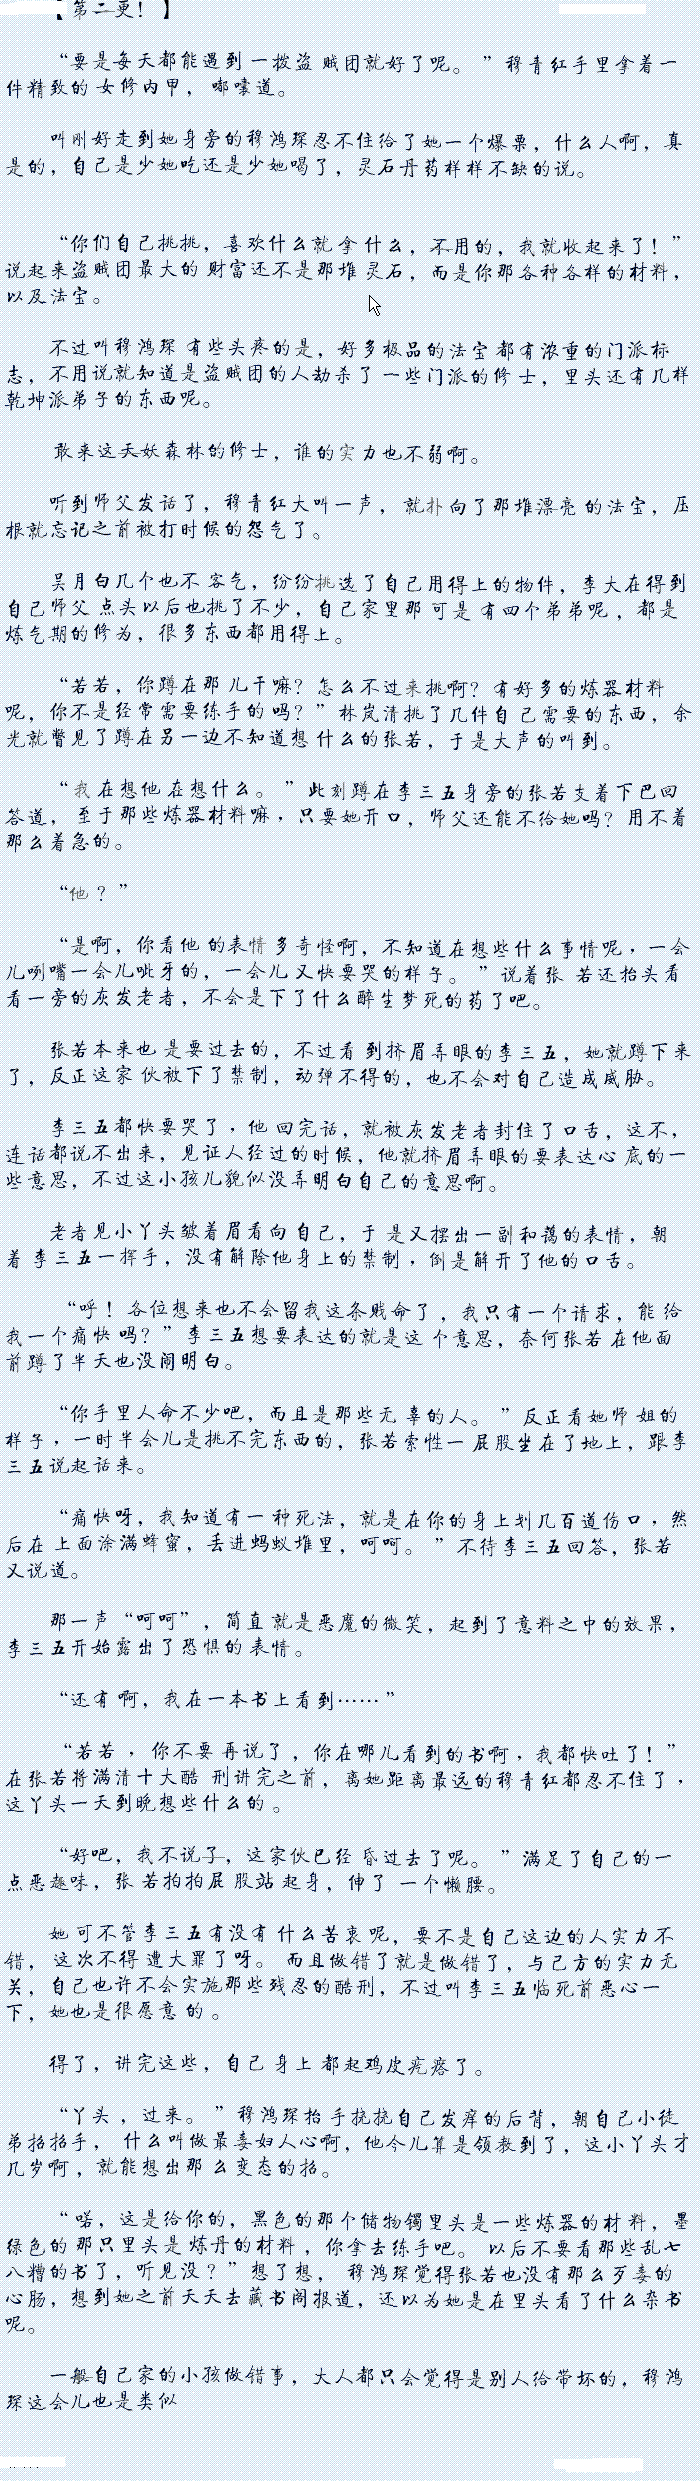 【第二更！】
“要是每天都能遇到一拨盗贼团就好了呢。”穆青红手里拿着一
件精致的女修内甲，嘟囔道。
叫刚好走到她身旁的穆鸿琛忍不住给了她一个爆栗，什么人啊，真
是的，自己是少她吃还是少她喝了，灵石丹药样样不缺的说。
“你们自己挑挑，喜欢什么就拿什么，不用的，我就收起来了！”
说起来盗贼团最大的财富还不是那堆灵石，而是你那各种各样的材料，
以及法宝。
不过叫穆鸿琛有些头疼的是，好多极品的法宝都有浓重的门派标
志，不用说就知道是盗贼团的人劫杀了一些门派的修士，里头还有几样
乾坤派弟子的东西呢。
敢来这天妖森林的修士，谁的实力也不弱啊。
听到师父发话了，穆青红大叫一声，就扑向了那堆漂亮的法宝，压
根就忘记之前被打时候的怨气了。
吴月白几个也不客气，纷纷挑选了自己用得上的物件，李大在得到
自己师父点头以后也挑了不少，自己家里那可是有四个弟弟呢，都是
炼气期的修为，很多东西都用得上。
“若若，你蹲在那儿干嘛？怎么不过来挑啊？有好多的炼器材料
呢，你不是经常需要练手的吗？”林岚清挑了几件自己需要的东西，余
光就瞥见了蹲在另一边不知道想什么的张若，于是大声的叫到。
“我在想他在想什么。”此刻蹲在李三五身旁的张若支着下巴回
答道，至于那些炼器材料嘛，只要她开口，师父还能不给她吗？用不着
那么着急的。
“他？”
“是啊，你看他的表情多奇怪啊，不知道在想些什么事情呢，一会
儿咧嘴一会儿呲牙的，一会儿又快要哭的样子。”说着张若还抬头看
看一旁的灰发老者，不会是下了什么醉生梦死的药了吧。
张若本来也是要过去的，不过看到挤眉弄眼的李三五，她就蹲下来
了，反正这家伙被下了禁制，动弹不得的，也不会对自己造成威胁。
李三五都快要哭了，他回完话，就被灰发老者封住了口舌，这不，
连话都说不出来，见证人经过的时候，他就挤眉弄眼的要表达心底的一
些意思，不过这小孩儿貌似没弄明白自己的意思啊。
老者见小丫头皱着眉看向自己，于是又摆出一副和蔼的表情，朝
着李三五一挥手，没有解除他身上的禁制，倒是解开了他的口舌。
“呼！各位想来也不会留我这条贱命了，我只有一个请求，能给
我一个痛快吗？”李三五想要表达的就是这个意思，奈何张若在他面
前蹲了半天也没闹明白。
“你手里人命不少吧，而且是那些无辜的人。”反正看她师姐的
样子，一时半会儿是挑不完东西的，张若索性一屁股坐在了地上，跟李
三五说起话来。
“痛快呀，我知道有一种死法，就是在你的身上划几百道伤口，然
后在上面涂满蜂蜜，丢进蚂蚁堆里，呵呵。”不待李三五回答，张若
又说道。
那一声“呵呵”，简直就是恶魔的微笑，起到了意料之中的效果，
李三五开始露出了恐惧的表情。
“还有啊，我在一本书上看到……”
“若若，你不要再说了，你在哪儿看到的书啊，我都快吐了！”
在张若将满清十大酷刑讲完之前，离她距离最远的穆青红都忍不住了，
这丫头一天到晚想些什么的。
“好吧，我不说子，这家伙已经昏过去了呢。”满足了自己的一
点恶趣味，张若拍拍屁股站起身，伸了一个懒腰。
她可不管李三五有没有什么苦衷呢，要不是自己这边的人实力不
错，这次不得遭大罪了呀。而且做错了就是做错了，与己方的实力无
关，自己也许不会实施那些残忍的酷刑，不过叫李三五临死前恶心一
下，她也是很愿意的。
得了，讲完这些，自己身上都起鸡皮疙瘩了。
“丫头，过来。”穆鸿琛抬手挠挠自己发痒的后背，朝自己小徒
弟招招手，什么叫做最毒妇人心啊，他今儿算是领教到了，这小丫头才
几岁啊，就能想出那么变态的招。
“喏，这是给你的，黑色的那个储物镯里头是一些炼器的材料，墨
绿色的那只里头是炼丹的材料，你拿去练手吧。以后不要看那些乱七
八糟的书了，听见没？”想了想，穆鸿琛觉得张若也没有那么歹毒的
心肠，想到她之前天天去藏书阁报道，还以为她是在里头看了什么杂书
呢。
一般自己家的小孩做错事，大人都只会觉得是别人给带坏的，穆鸿
琛这会儿也是类似